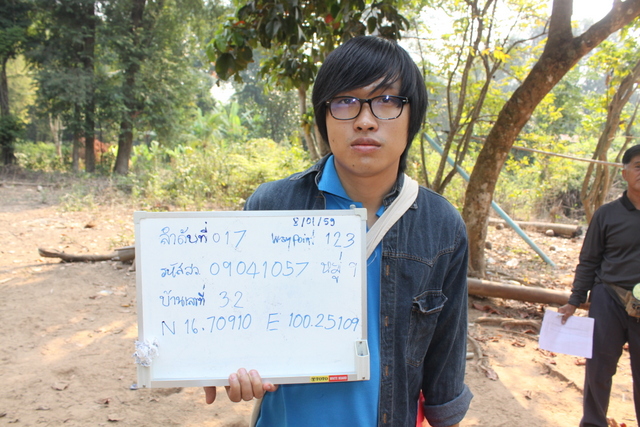 8/01/59
ลำดับที่ 017 way point 123
รหัสสว 09041057 หมู่ 9
บ้านเลขที่ 32
N 16.70910 E 100.25109
TOTO